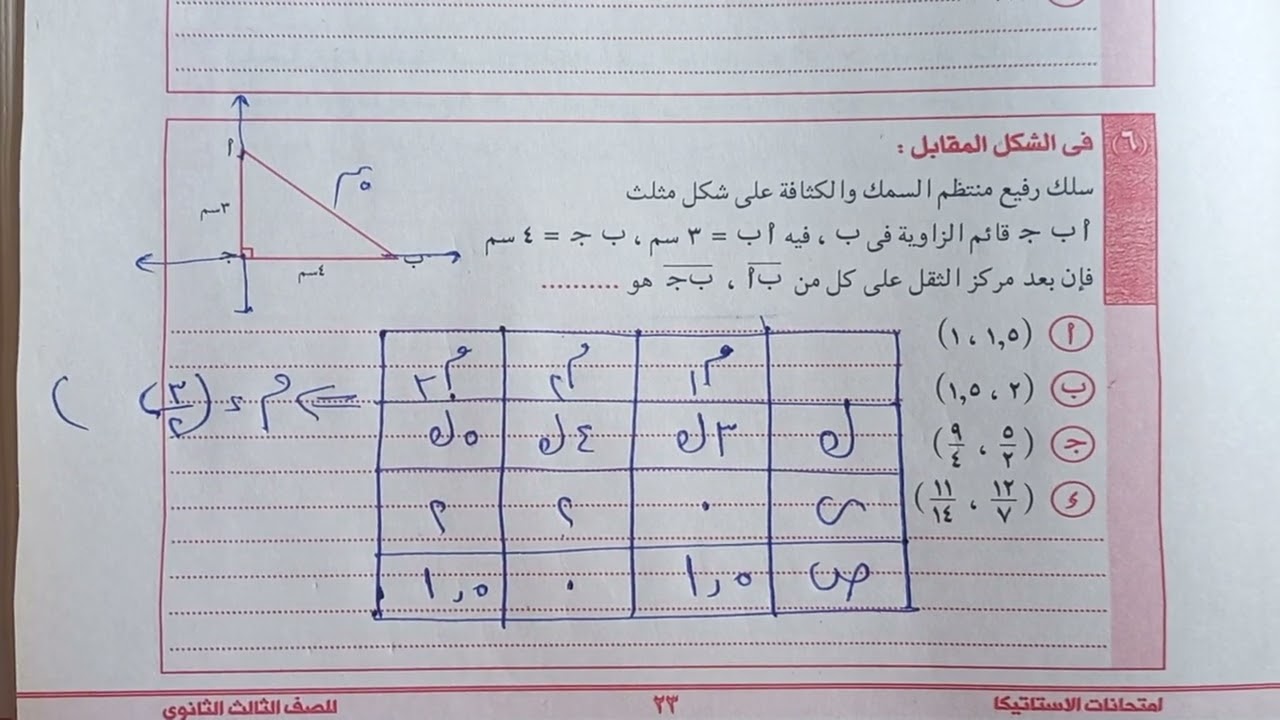 (٦)
فى الشكل المقابل :
سلك رفيع منتظم السمك والكثافة على شكل مثلث
أ ب ج قائم الزاوية فى ب ، فيه أ ب = ٣ سم ، ب ج = ٤ سم
فإن بعد مركز الثقل على كل من ب أ ، ب ج هو ..........
أ (١,٥ ، ١)
ب (٢ ، ١,٥)
ج (٥/٢ ، ٩/٤)
ء (١٢/٧ ، ١١/١٤)
أ
٥
٣سم
ج
ب
٤سم
م١ م٢ م٣
ك ٣ك ٤ك ٥ك
س ٠ ٢ ٢
ص ١,٥ ٠ ١,٥
⇐ م = (٣/٢ )
امتحانات الاستاتيكا
٢٣
للصف الثالث الثانوى